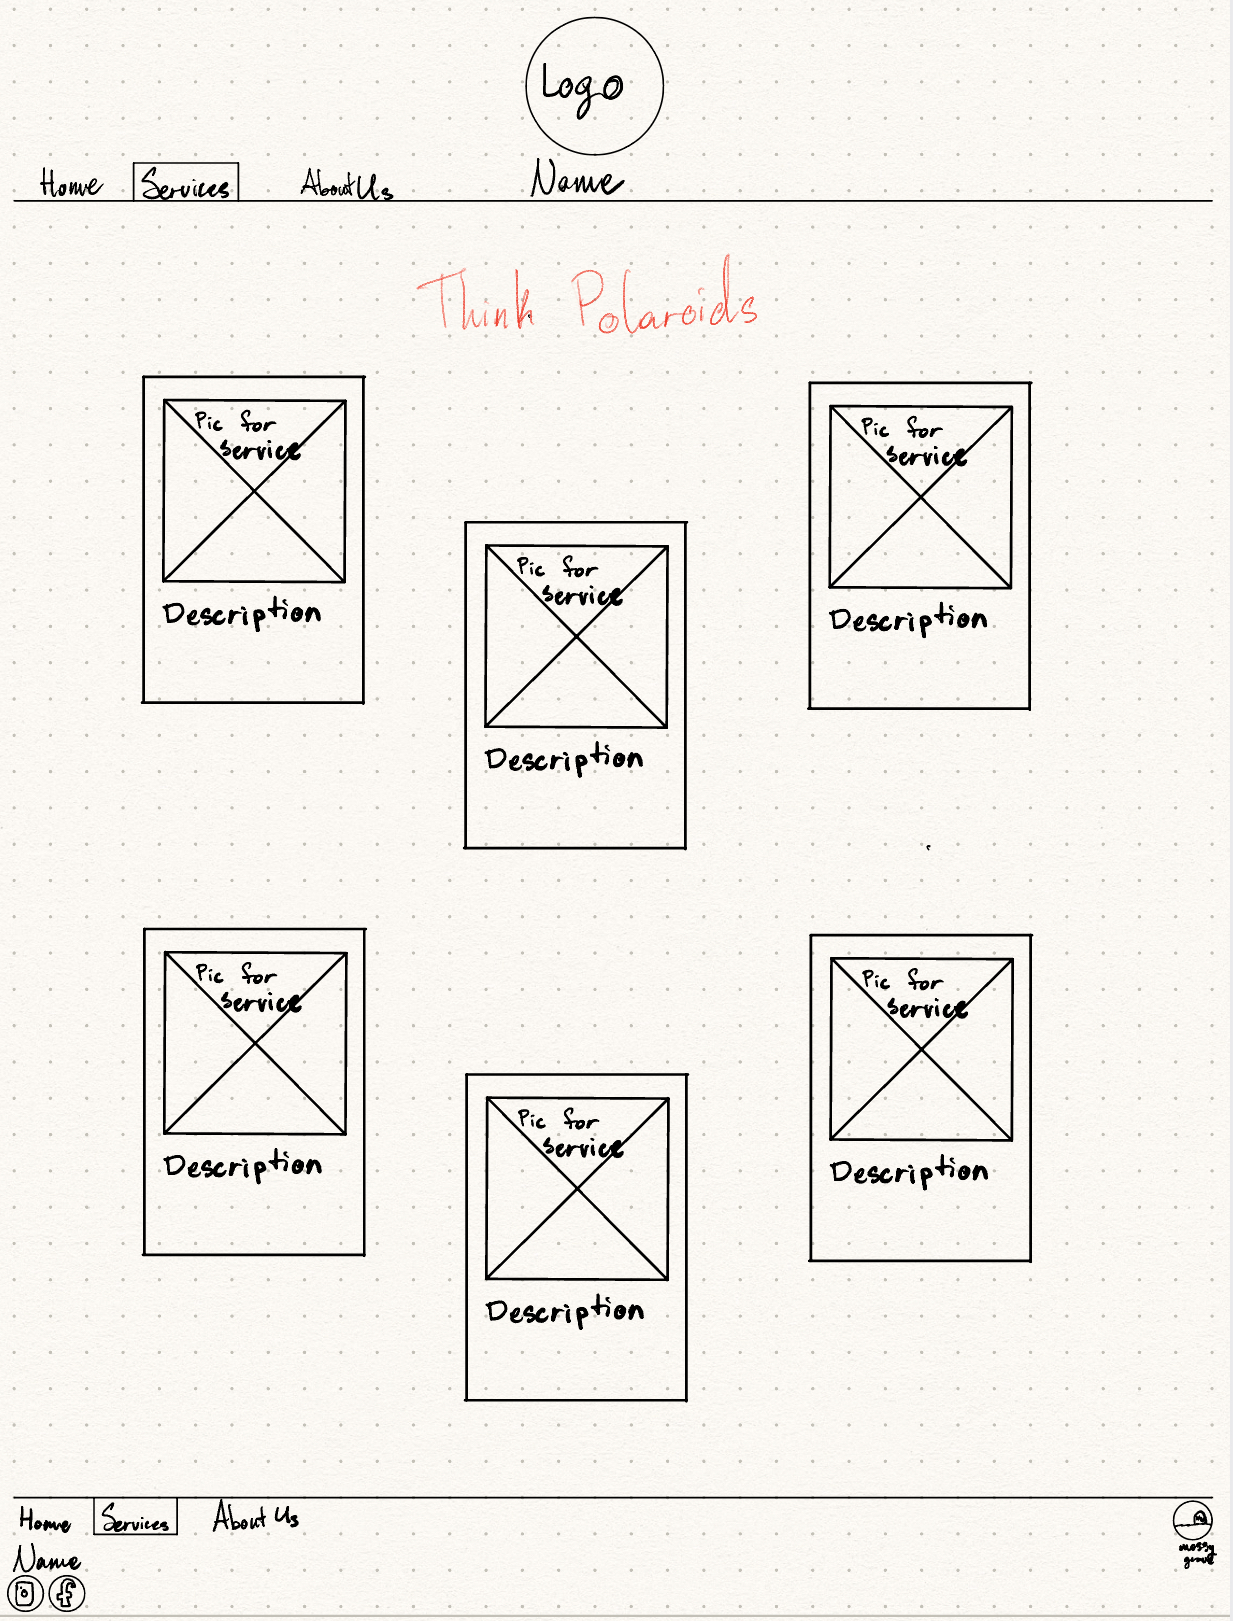 Logo
Home Services About Us Name
Think Polaroids
Pic for
service
Description
Pic for
service
Description
Pic for
service
Description
Pic for
service
Description
Pic for
service
Description
Pic for
service
Description
Home Services About Us
Name
mossy